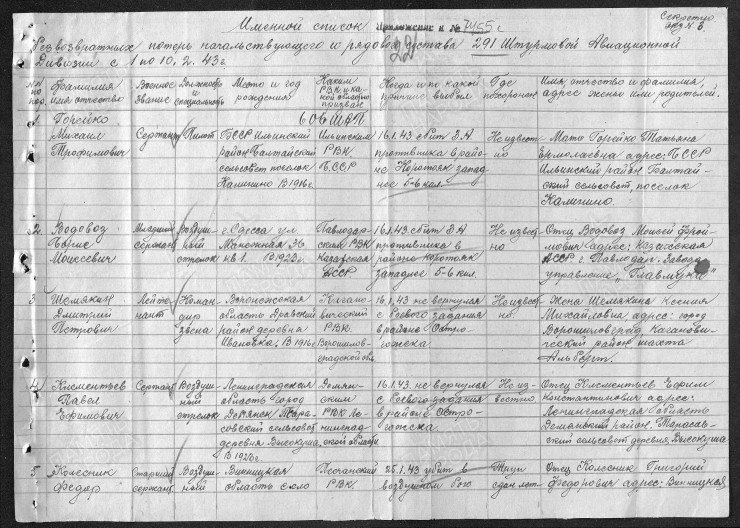 Секретно
экз. N. 3.
Приложение к № 7455с
Именной список
безвозвратных потерь начальствующего и рядового состава 291 Штурмовой Авиационной
Дивизии с 1 по 10.2.43г.
№№ по пор. Фамилия имя отчество Военное звание Должность и специальность Место и год рождения Каким РВК и какой области призван Когда и по какой причине выбыл Где похоронен Имя, отчество и фамилия, адрес жены или родителей.
606 ШАП
1. Горейко Михаил Трофимович Сержант Пилот БССР Ильинский район Балтайский сельсовет поселок Калинино В 1916г Ильинским РВК БССР 16.1.43. сбит ЗА противника в районе Коротояк западнее 5-6 кил. Неизвестно Мать Горейко Татьяна Ермолаевна адрес: БССР Ильинский район Балтайский сельсовет, поселок Калинино.
2. Водовоз Борис Моисеевич Младший сержант Воздушный стрелок г. Одесса ул. Манежная 36 кв 1. В 1923г. Павлодарским РВК Казахская ССР 16.1.43. сбит ЗА противника в районе Коротояк западнее 5-6 кил. Неизвестно Отец Водовоз Моисей адрес: Казахская ССР г. Павлодар. управление
3. Шемякин Дмитрий Петрович Лейтенант Командир звена Воронежская область район деревня Ивановка. В 1916г Кагановический РВК. Ворошиловградской обл. 16.1.43 не вернулся с боевого задания в районе Острогожска. Неизвестно Жена Шемякина Ксения Михайловна адрес: город Ворошиловград, Кагановический район, шахта Альберт.
4. Климентьев Павел Ефимович Сержант Воздушный стрелок Ленинградская область город сельсовет деревня Высокуша. В 1920г. РВК Ленинградской области 16.1.43. не вернулся с боевого задания в районе Острогожска. Неизвестно Отец Климентьев Ефим Константинович адрес: Ленинградская область район, сельсовет деревня, Высокуша
5. Колесник Федор Старший сержант Воздушный Винницкая область село Песчанский РВК. 25.1.43 убит в воздушном бою Отец Колесник Григорий Федорович адрес: Винницкая,